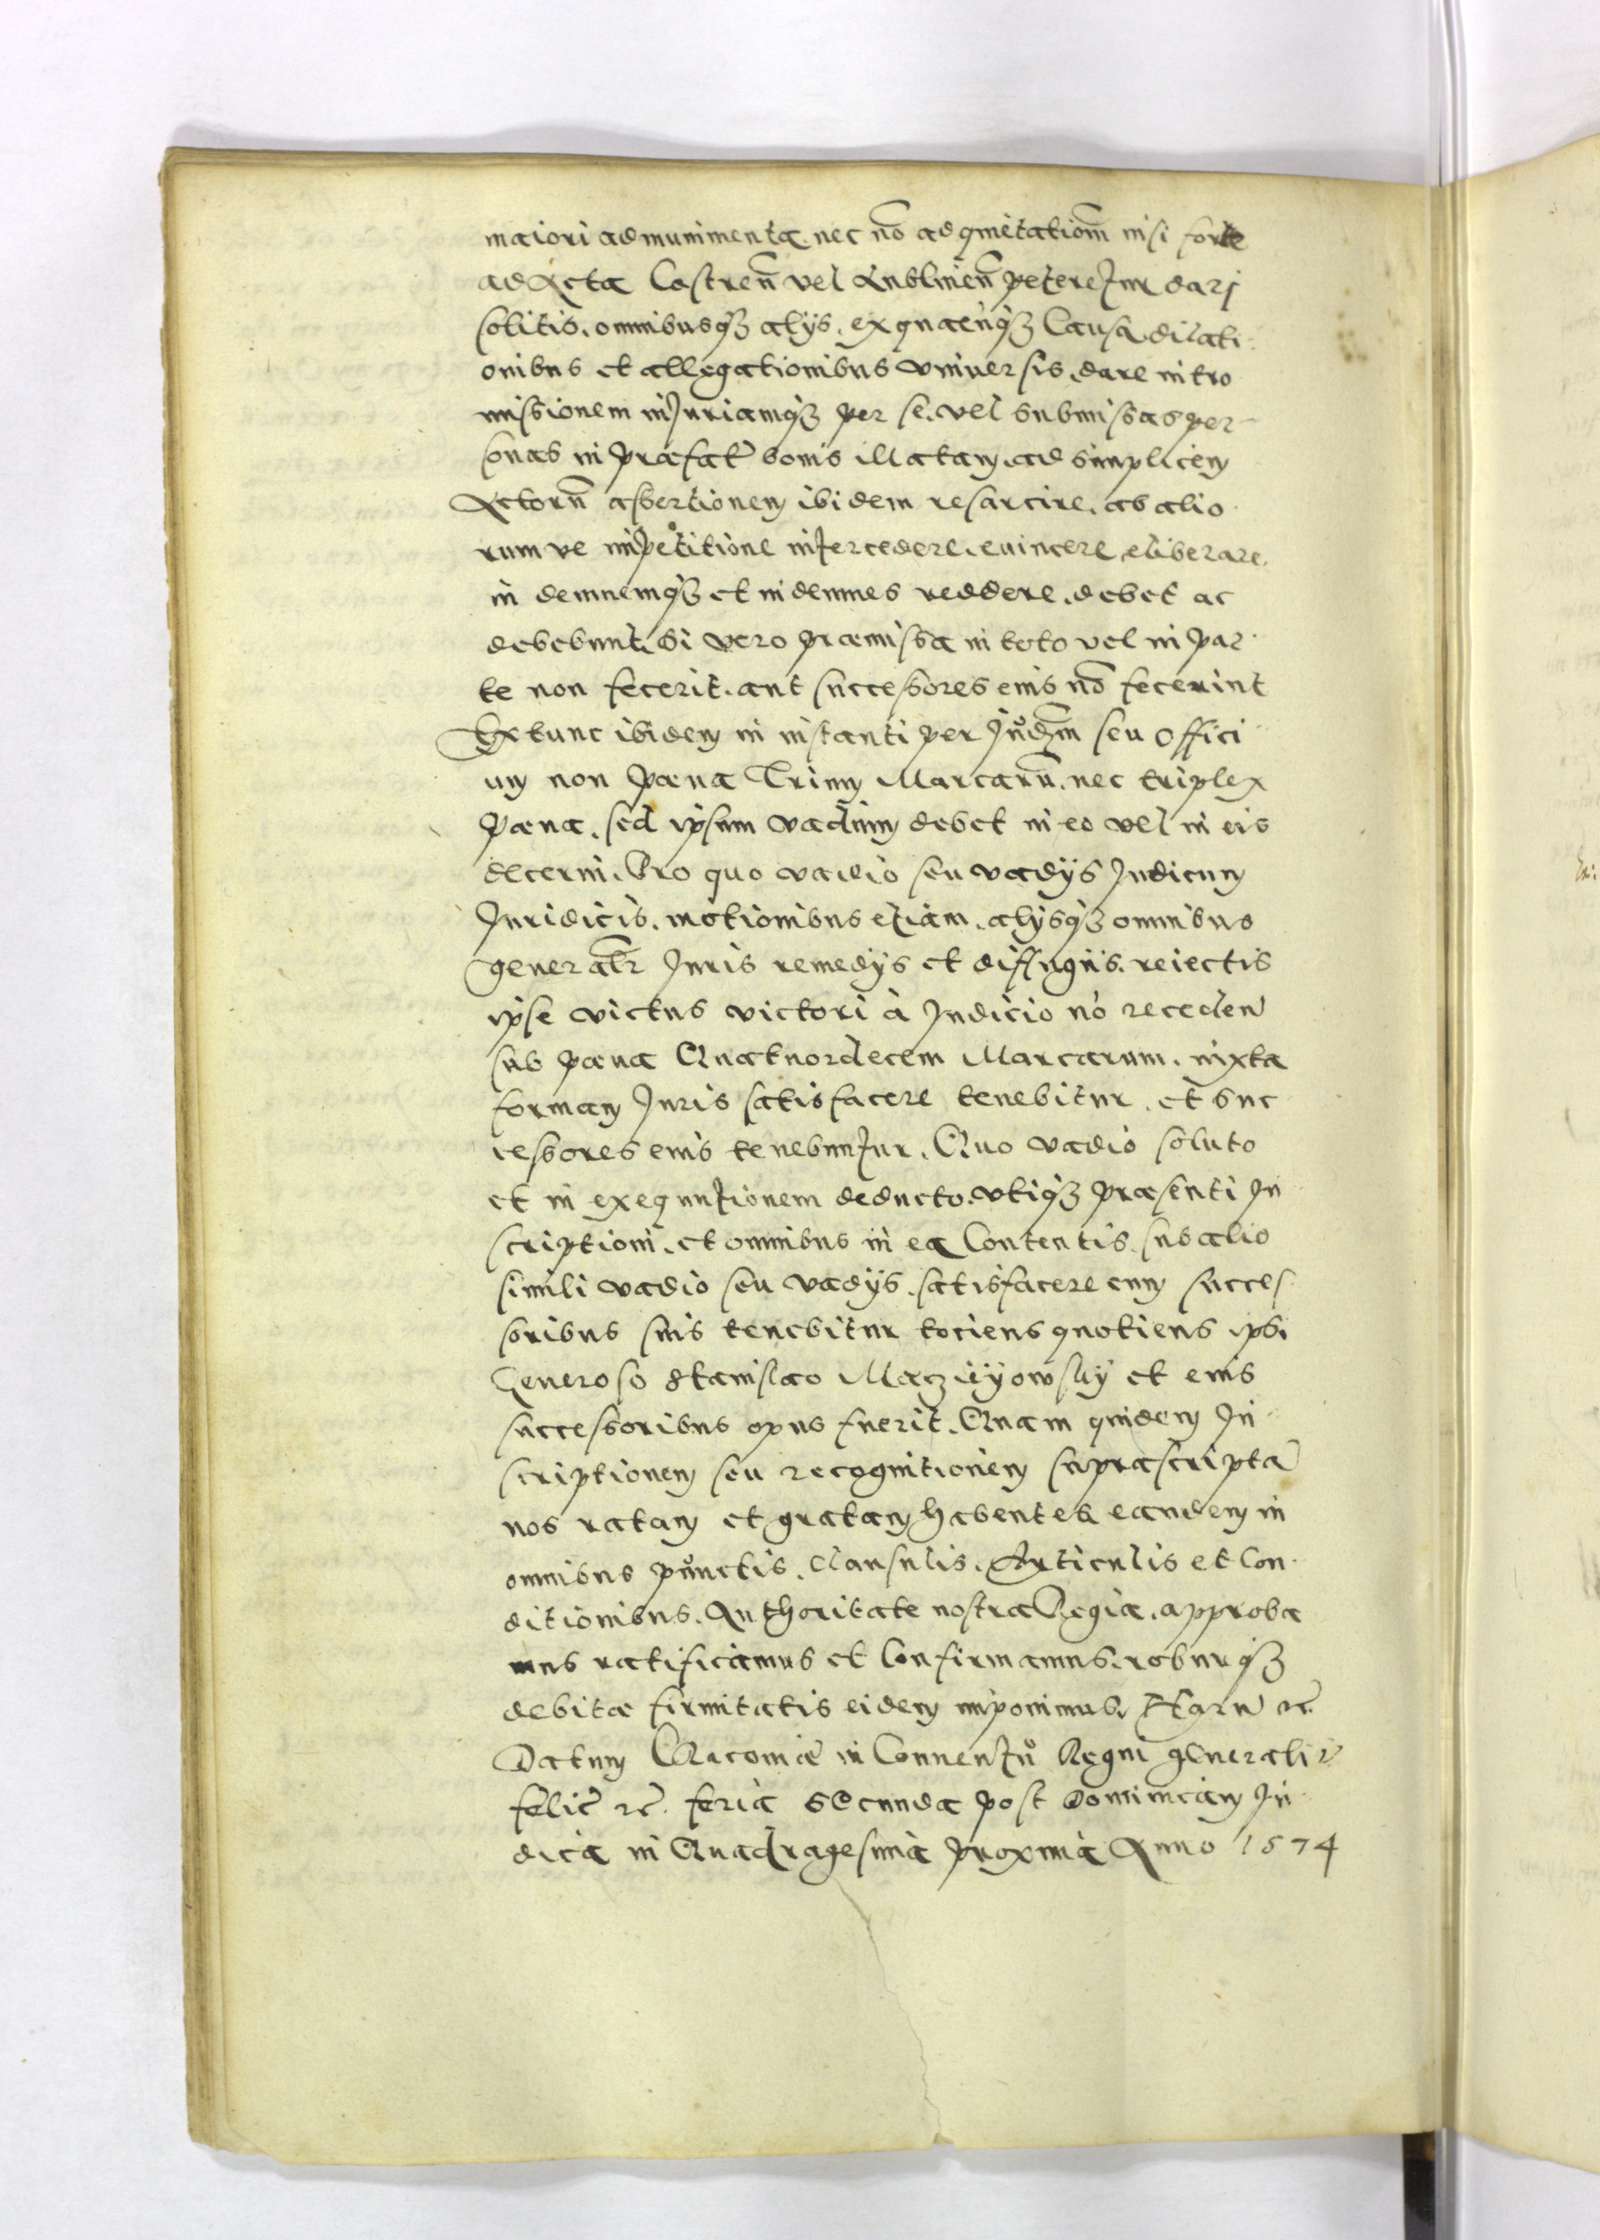 maiori ad munimenta. nec nõ ad quietatiom̃ nisi forte
ad Acta Castren̄ vel Lublinen̄ peteretur dari
solitis. omnibusq3 alijs. ex quacũq3 Causa. dilati
onibus et allegationibus vniuersis. dare intro
missionem iniuriamq3 per se. vel submissas per
sonas in præfat̃ bonis illatam. ad simplicem
Actoru̅ assertionem ibidem resarcire. ab alio
rum ve impetitione intercedere. euincere eliberare.
in demnemq3 et indemnes reddere. debet ac
debebunt. Si vero præmissa in toto vel in par
te non fecerit. aut successores eius nõ fecerint
Extunc ibidem in instanti per Iudm̃ seu Offici
um non pæna Trium Marcaru̅. nec triplex
pæna. sed ipsum vadium debet in eo vel in eis
decerni. Pro quo vadio seu vadijs Iudicum
Iuridicis. motionibus etiam. alijsq3 omnibus
generalr̃ Iuris remedijs et diffugijs. reiectis
ipse victus victori à Iudicio nõ receden̄
sub pæna Quatuordecem Marcarum. iuxta
formam Iuris satisfacere tenebitur. et suc
cessores eius tenebuntur. Quo vadio soluto
et in exequutionem deducto. vtiq3 præsenti In
scriptioni. et omnibus in ea Contentis. sub alio
simili vadio seu vadijs. satisfacere cum succes
soribus suis tenebitur tociens quotiens ipsi
Generoso Stanislao Maczieyowsky et eius
successoribus opus fuerit. Quam quidem In
scriptionem seu recognitionem supræscriptã
nos ratam et gratam habentes. eandem in
omnibus punctis. Clausulis. Articulis et Con
ditionibus. Authoritate nostra Regia. approba
mus ratificamus et Confirmamus. roburq3
debitæ firmitatis eidem imponimus. Harũ rc̃
Datum Cracouiæ in Conuentu Regni generali
felic̃ rc̃. feria secunda post Dominicam Iu
dica in Quadragesima proxima Anno 1574